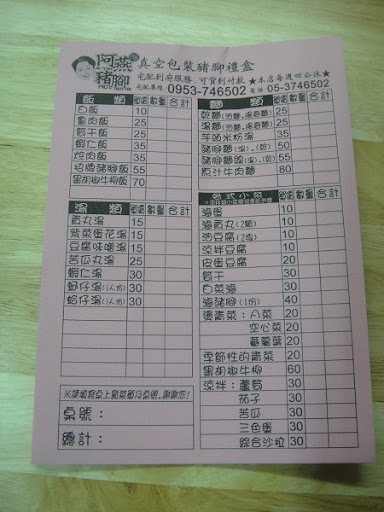 阿燕
豬腳
真空包裝豬腳禮盒
宅配到府服務 可貨到付款 ★本店每週四公休★
宅配專線 0953-746502 電話 05-3746502
飯類 單價 數量 合計
白飯 10
魯肉飯 25
筍干飯 25
蝦仁飯 35
焢肉飯 35
招牌豬腳飯 55
黑胡椒牛柳飯 70
35
湯類 單價 數量 合計
貢丸湯 15
紫菜蛋花湯 15
豆腐味噌湯 15
苦瓜丸湯 25
蝦仁湯 30
蚵仔湯(1人份) 30
蛤仔湯(1人份) 30
※請填寫桌上號碼
桌號：
總計：
單價 數量 合計
乾麵 25
湯麵 25
芋頭米粉湯 35
豬腳麵(湯)、(乾) 50
豬腳麵線(湯)、(乾) 55
原汁牛肉麵 80
各式小菜 單價 數量 合計
滷蛋 10
滷貢丸(2顆) 10
油豆腐(2塊) 10
涼拌豆腐 20
皮蛋豆腐 20
筍干 30
白菜滷 30
滷豬腳(1份) 40
燙青菜：A菜 20
空心菜 20
蕃薯葉 20
季節性的青菜 20
黑胡椒牛柳 60
涼拌：蘆筍 30
茄子 30
苦瓜 30
三色蛋 30
綜合沙拉 30